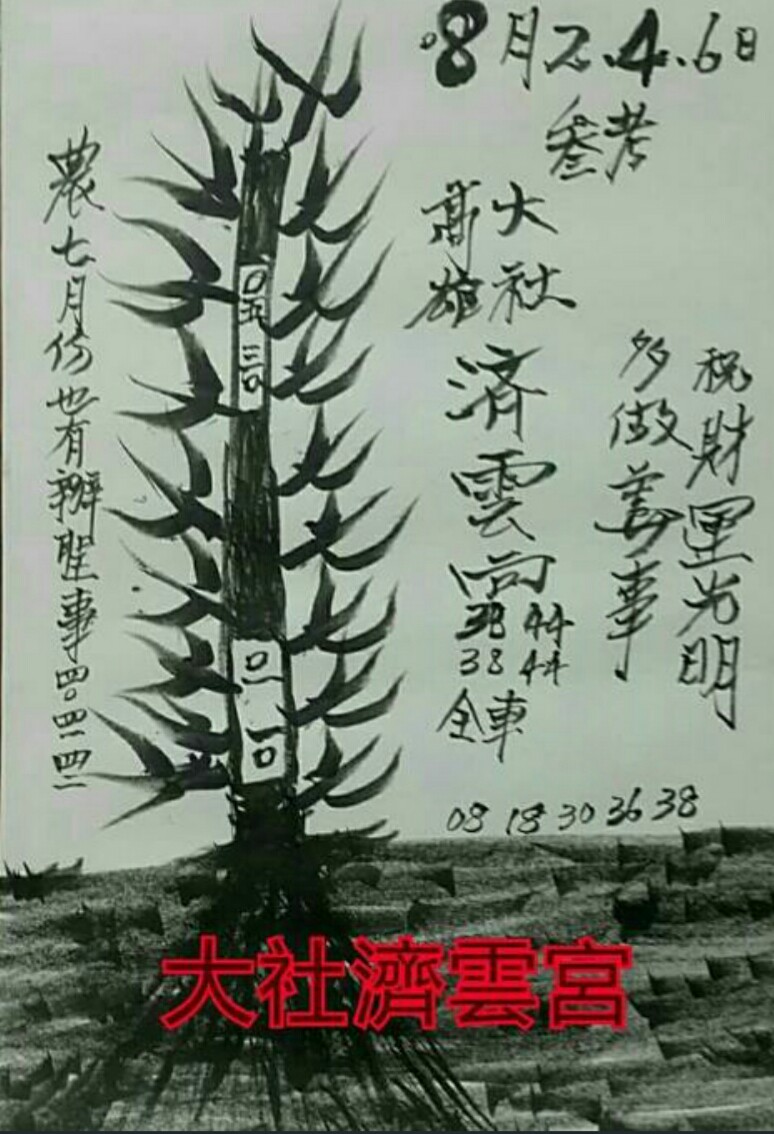 8月2.4.6日
參考
大社
高雄
済雲宮
38 44
38 44
全車
祝財運光明
多做善事
08 18 30 36 38
農七月份也有辦聖事四0四一四二
0五
三0
0一
一0
大社濟雲宮